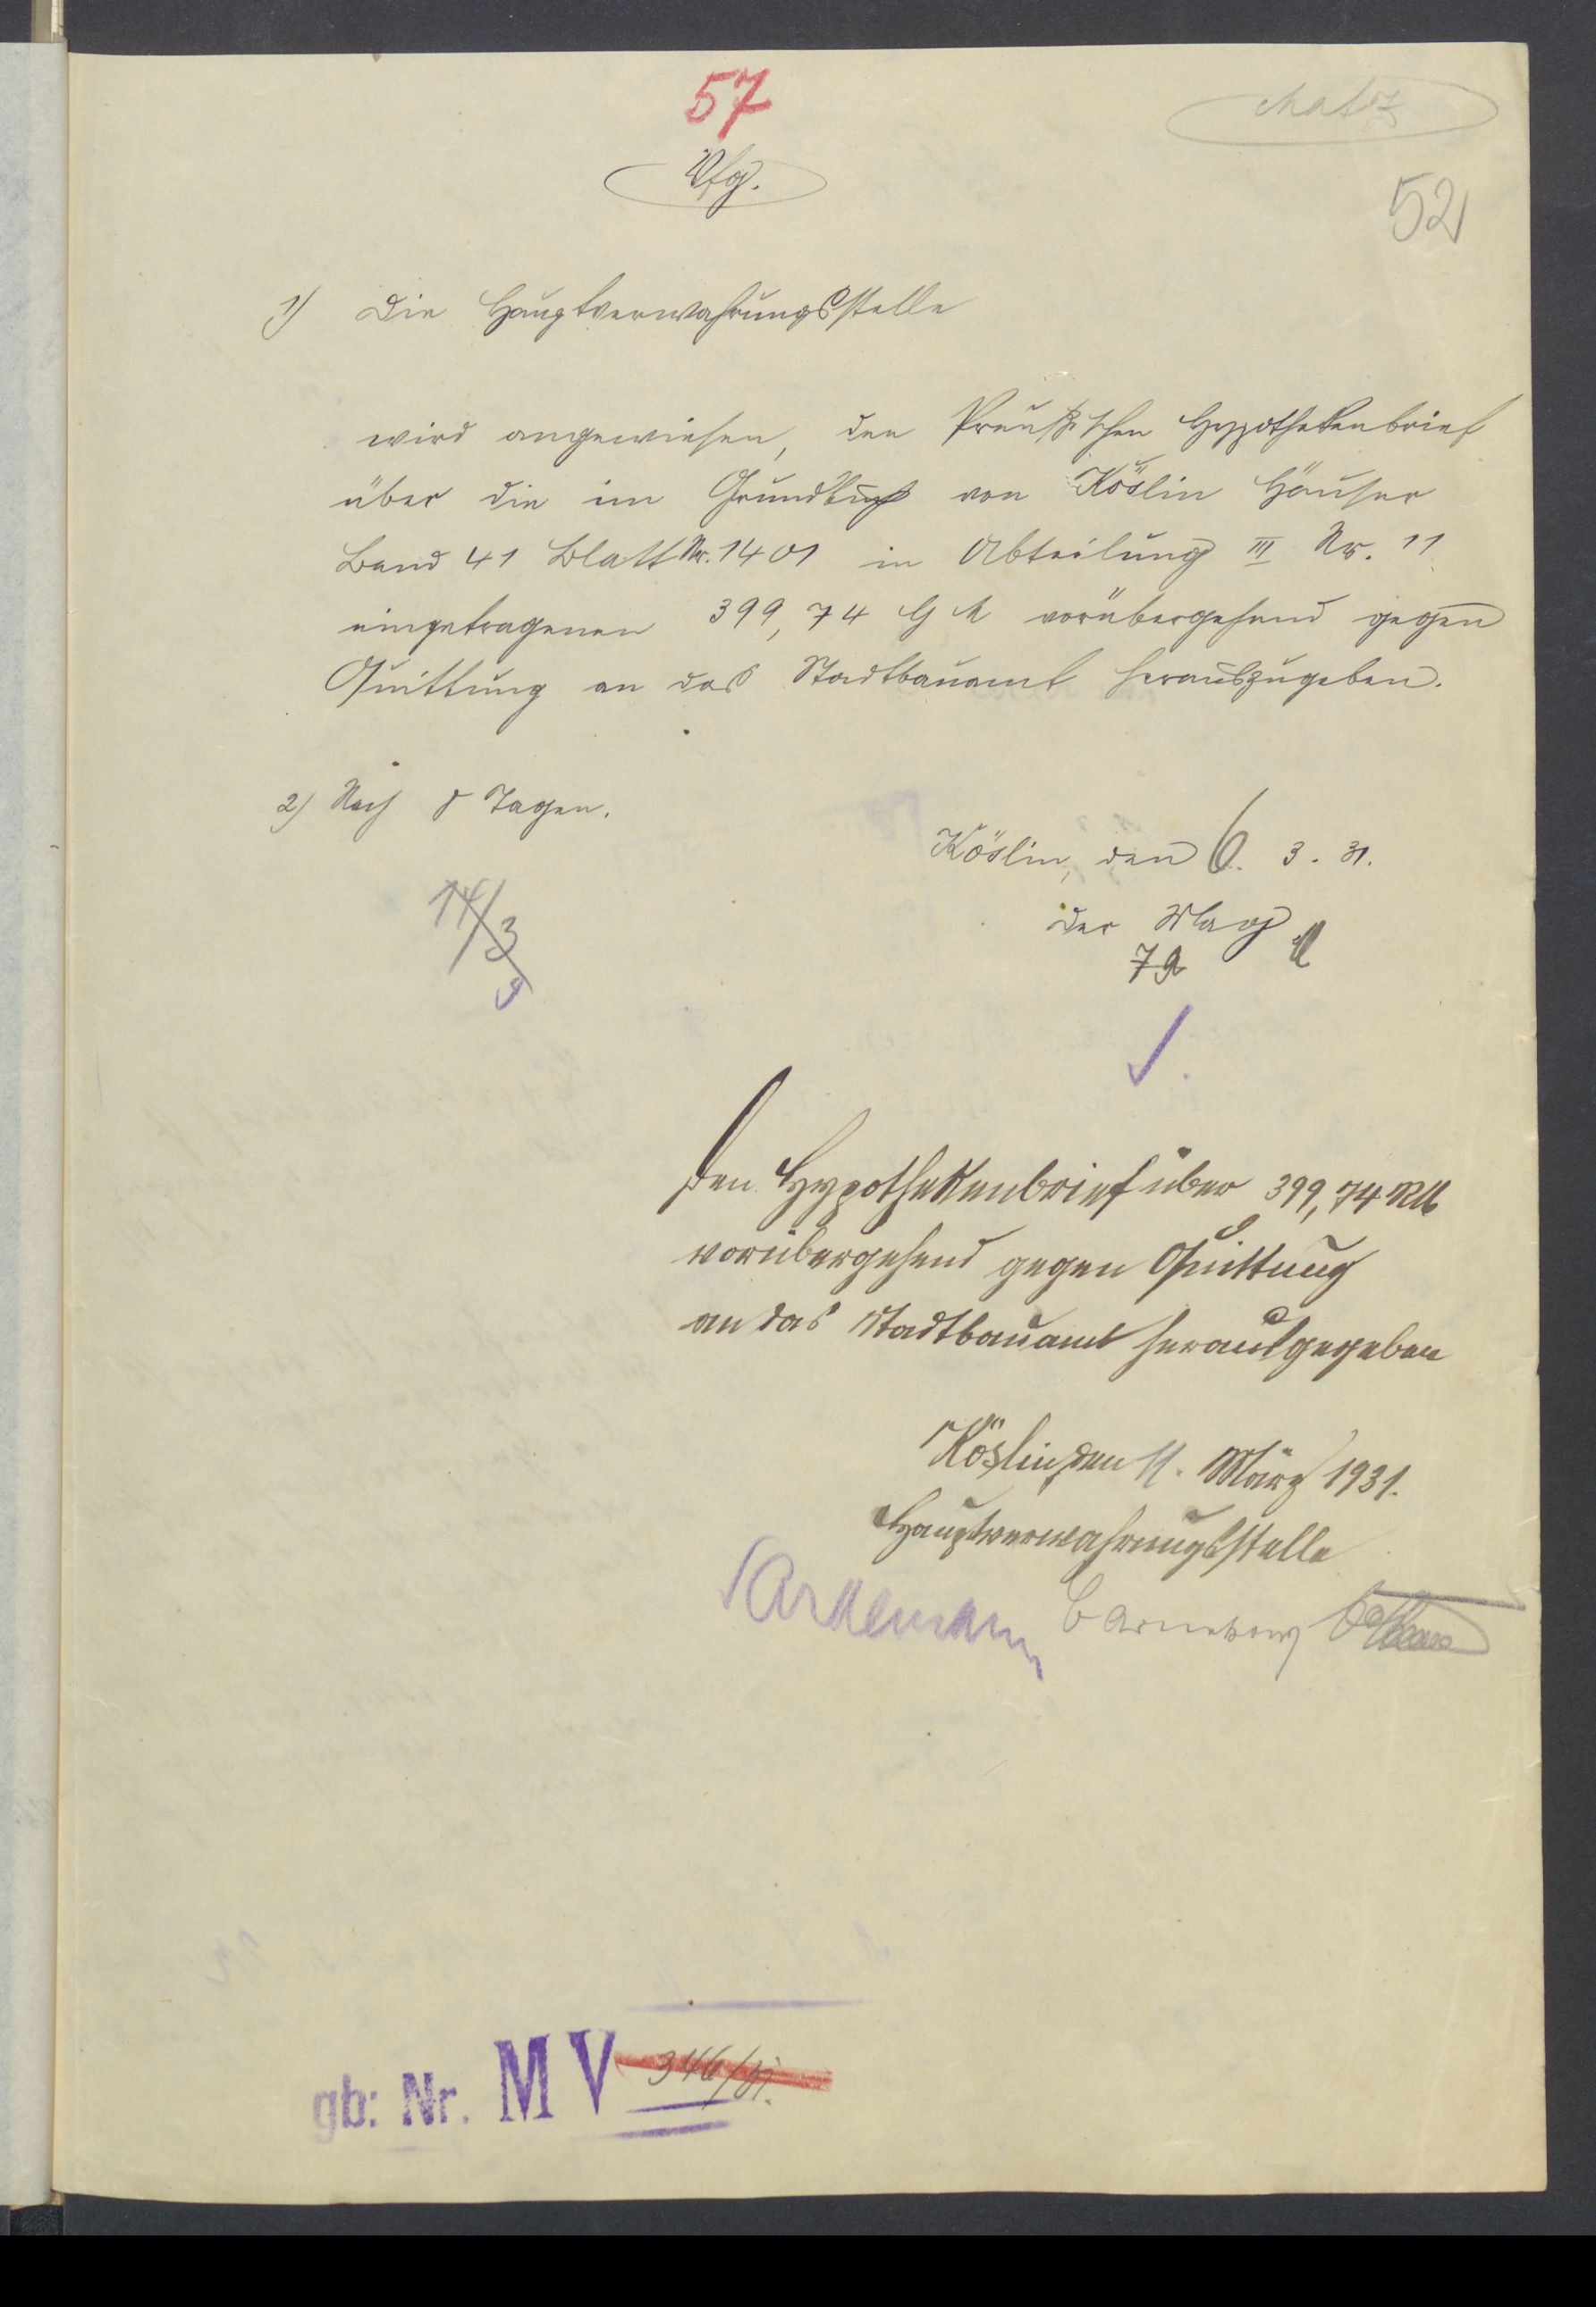 57
Vfg.
52
1) Die Hauptverwahrungsstelle
wird angewiesen, den Preußischen Hypothekenbrief
über die im Grundbuch von Köslin Häuser
Band 41 Blatt Nr. 1401 in Abteilung III Nr. 11
eingetragenen 399,74 GM vorübergehend gegen
Quittung an das Stadtbauamt herauszugeben.
2) Nach 8 Tagen.
Köslin, den 6. 3. 31.
Der Mag
14/3
Den Hypothekenbrief über 399,74 RM
vorübergehend gegen Quittung
an das Stadtbauamt herausgegeben
Köslin, den 11. März 1931.
Hauptverwahrungsstelle
gb: Nr. M V 346/31.